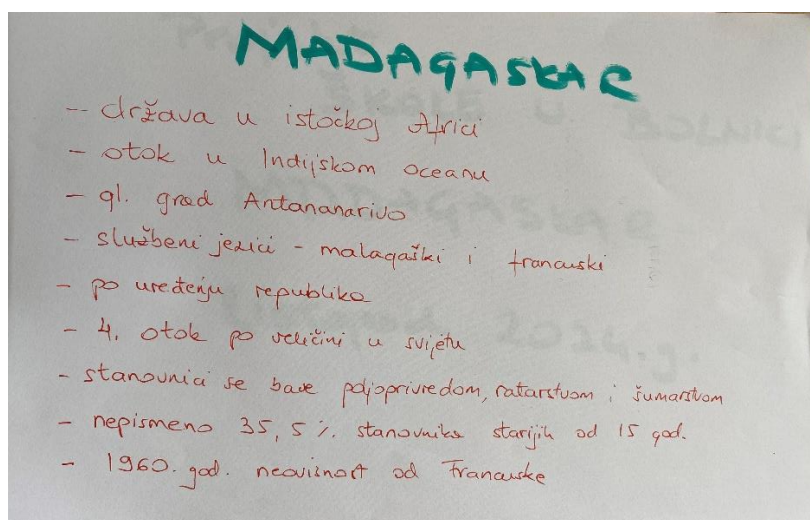 MADAGASKAR
- država u istočkoj Africi
- otok u Indijskom oceanu
- gl. grad Antananarivo
- službeni jezici - malagaški i francuski
- po uređenju republika
- 4. otok po veličini u svijetu
- stanovnici se bave poljoprivredom, ratarstvom i šumarstvom
- nepismeno 35,5 % stanovnika starijih od 15 god.
- 1960. god. neovisnost od Francuske